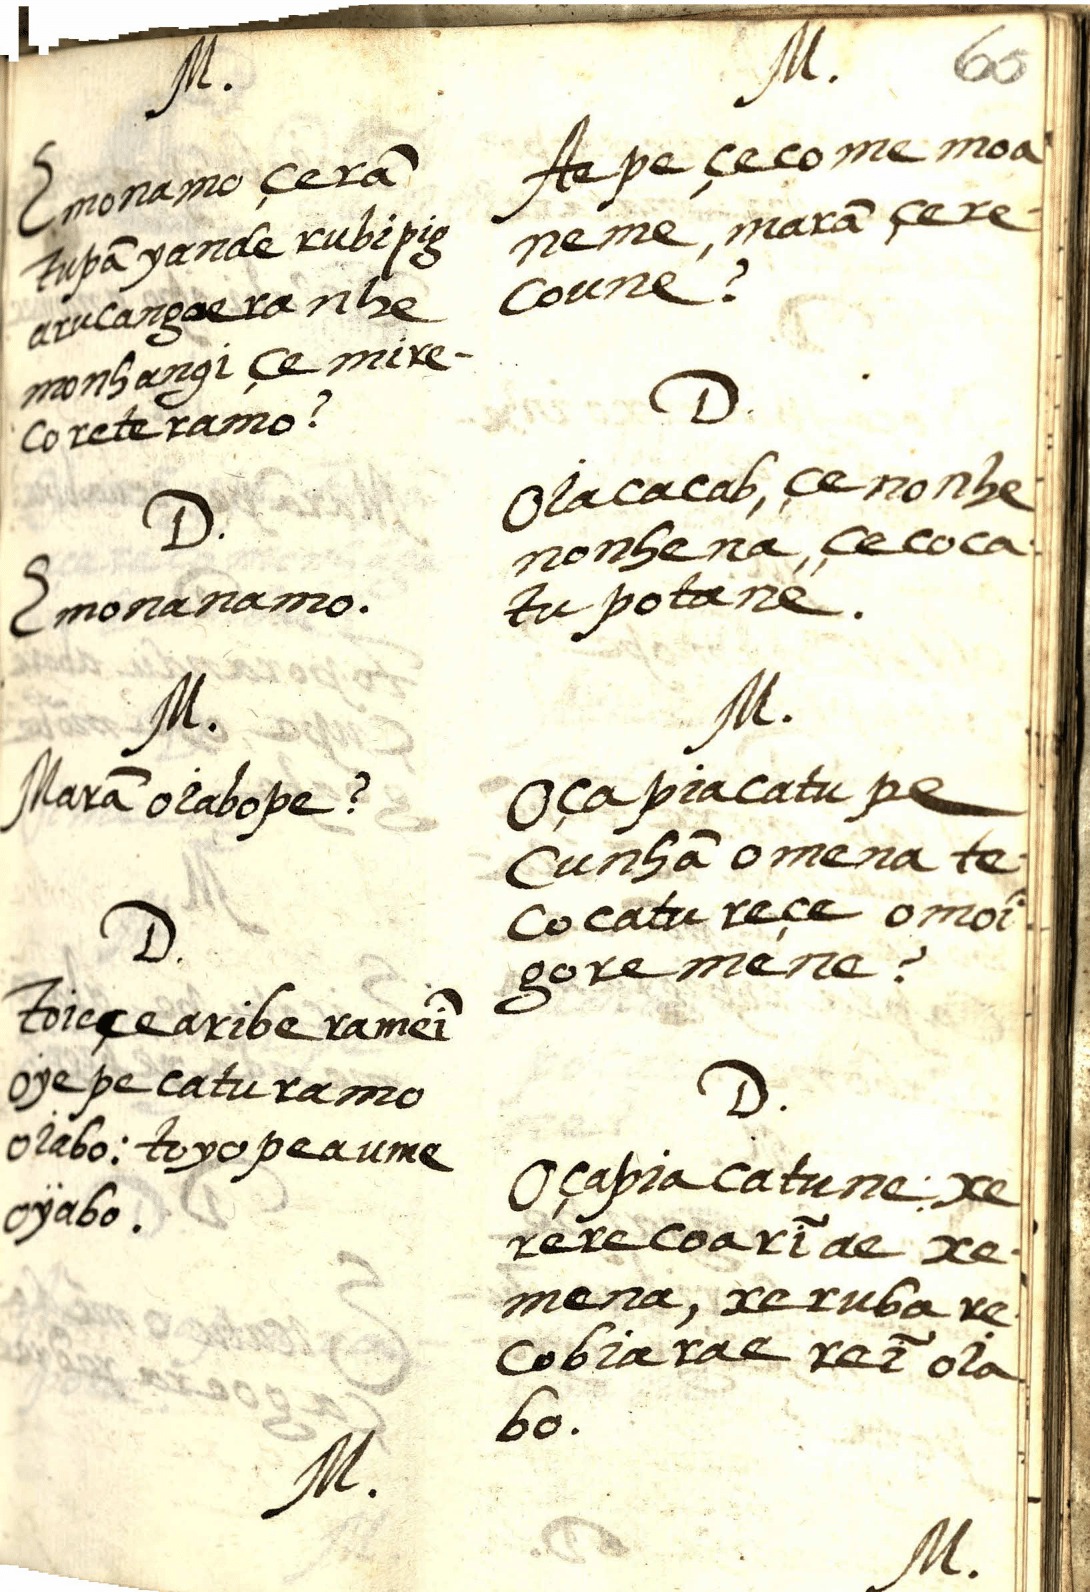 M.
Emonamo çerã
tupã yande rubipig
arucangoera nhe
monhangi çe mire-
co reteramo?
D.
Emonanamo.
M.
Marã oiabope?
D.
Toicoçe aribe rameĩ
oyepe catu ramo
oiabo: toyopeaume
oÿabo.
M.
M. 60
Ae pe çeco me moa
neme, marã çere-
coune?
D.
Oiacacab, çenonhe
nonhena, çecoca
tu potane.
M.
Oçapiacatu pe
Cunhã omena te
co catu reçe omoĩ
goreméne?
D.
Oçapia catune: xe
rerecoarĩae xe
mena, xeruba re
cobiarae reĩ oia
bo.
M.